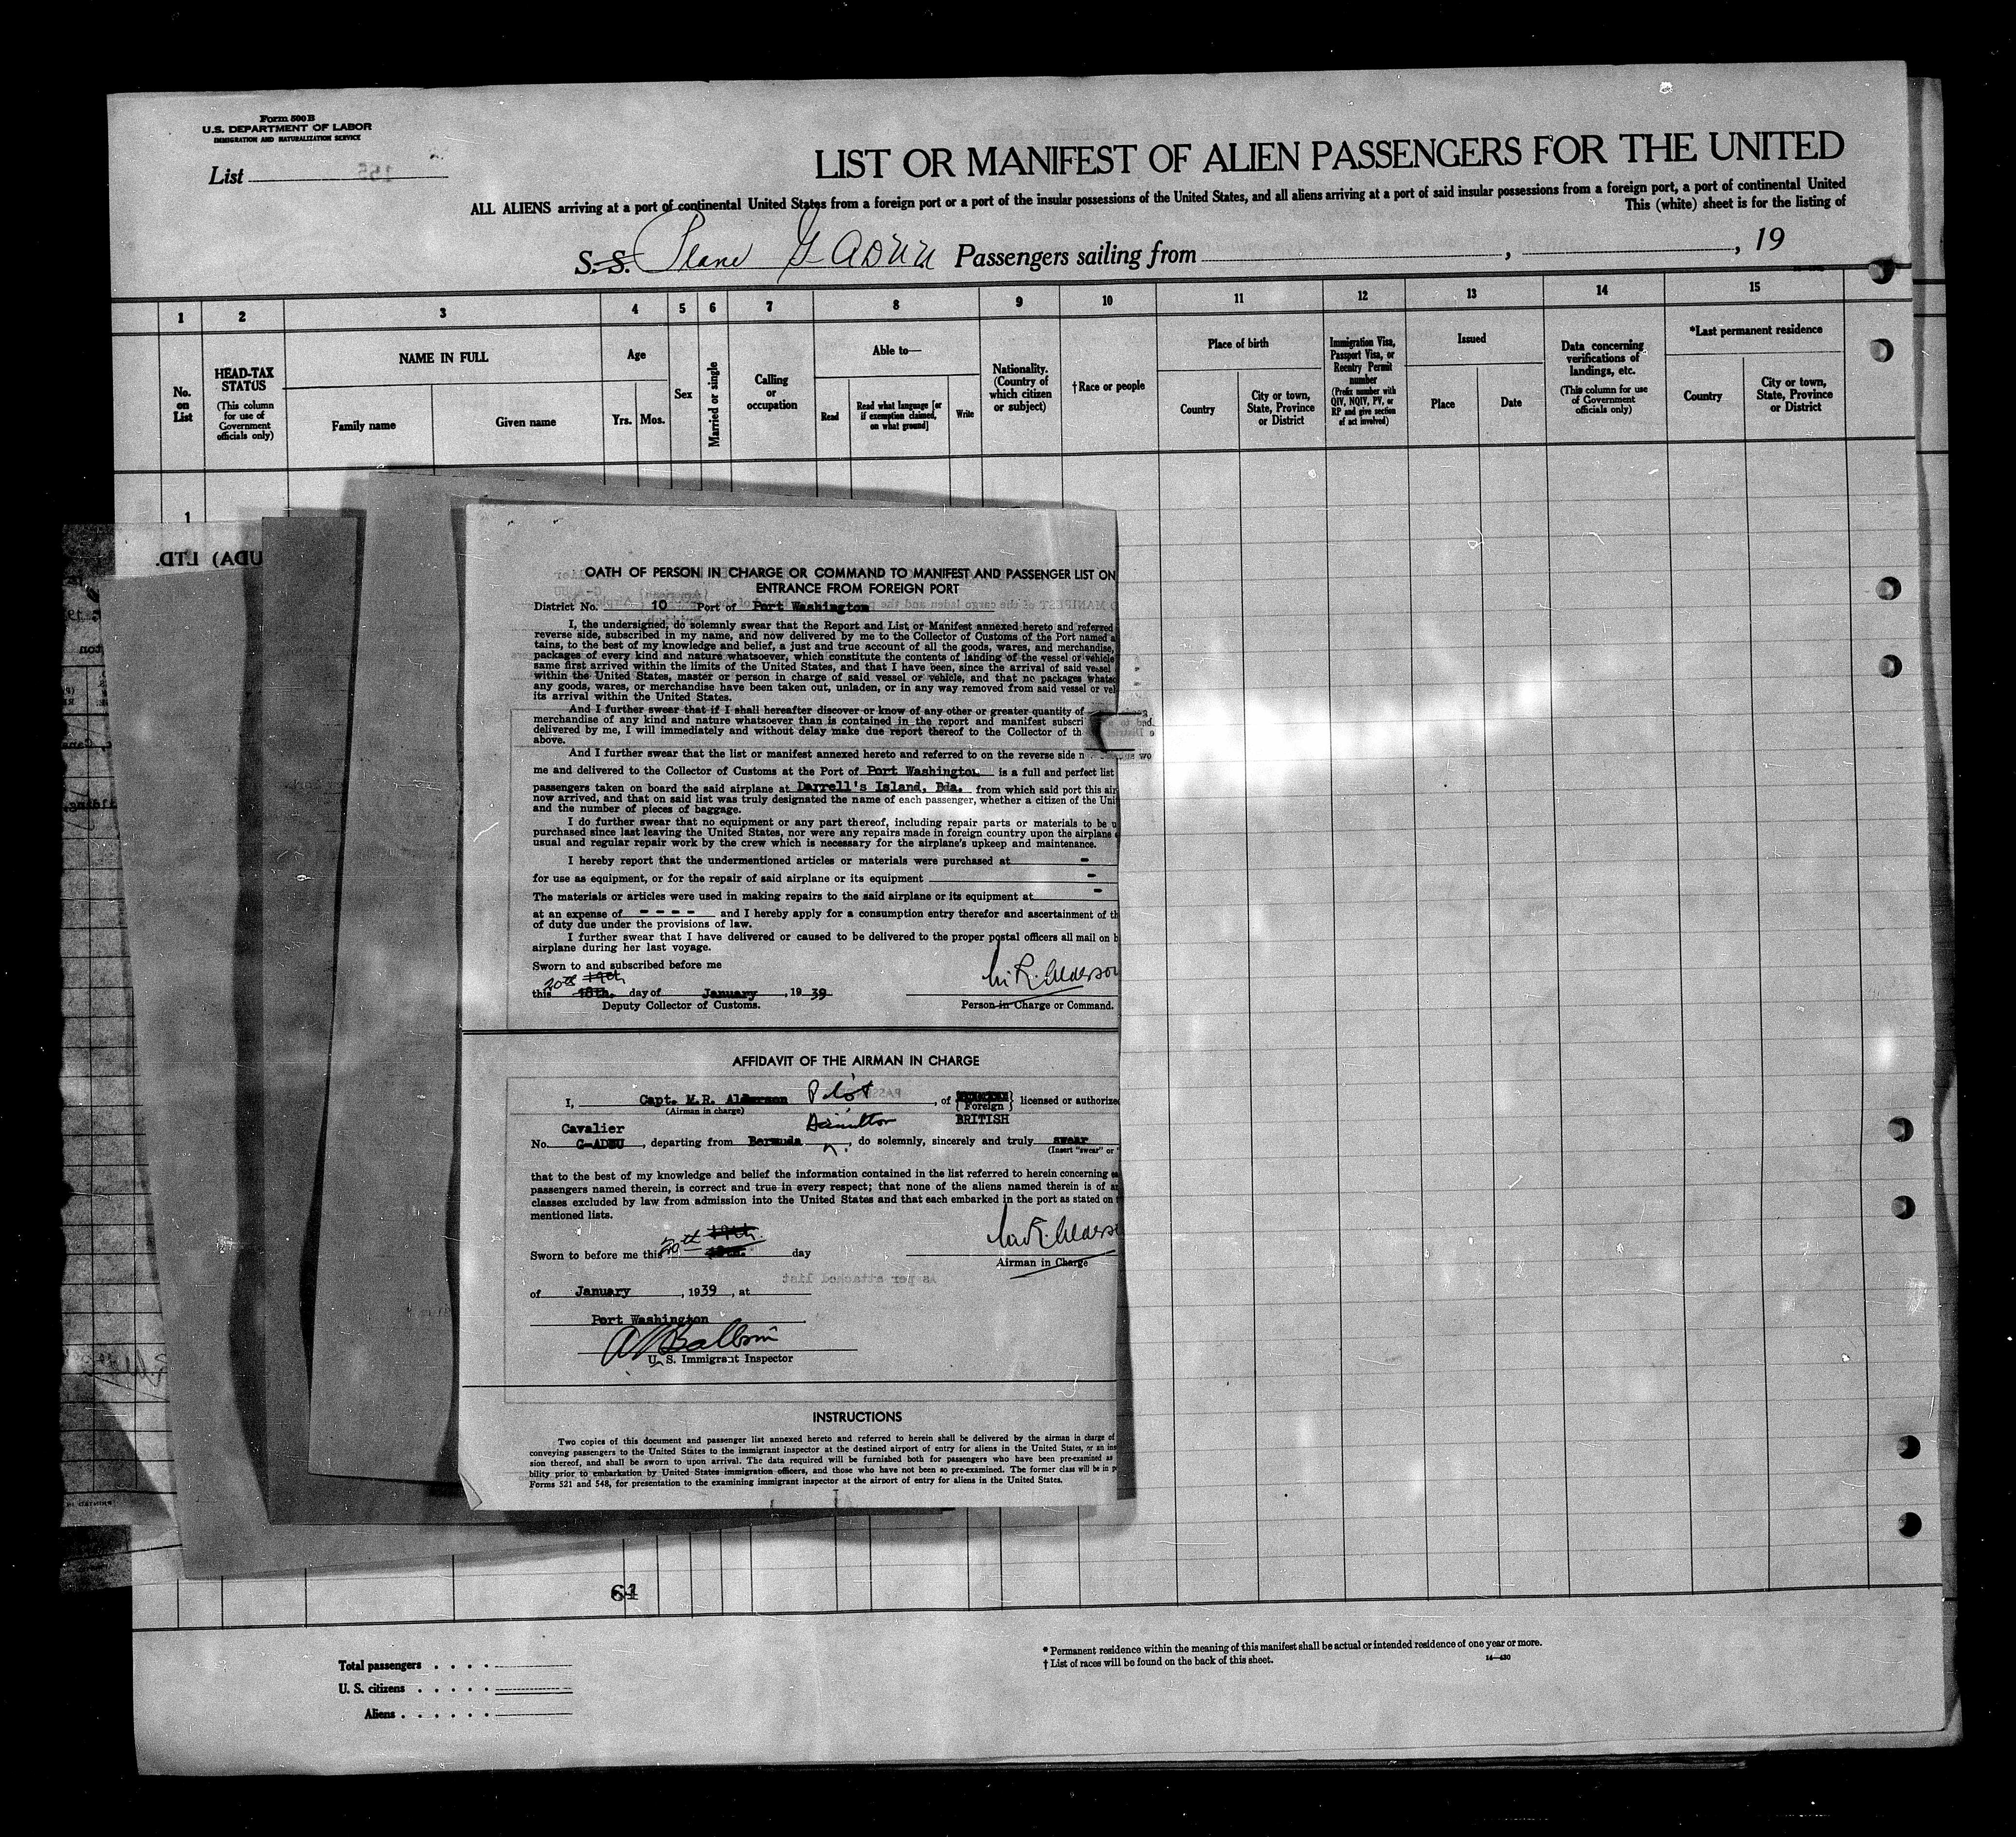 Form 500 B
U.S. DEPARTMENT OF LABOR
IMMIGRATION AND NATURALIZATION SERVICE
List 155
LIST OR MANIFEST OF ALIEN PASSENGERS FOR THE UNITED
ALL ALIENS arriving at a port of continental United States from a foreign port or a port of the insular possessions of the United States, and all aliens arriving at a port of said insular possessions from a foreign port, a port of continental United
This (white) sheet is for the listing of
S. S. Plane G ADUU Passengers sailing from , , 19
1 2 3 4 5 6 7 8 9 10 11 12 13 14 15
No. on List
HEAD-TAX STATUS (This column for use of Government officials only)
NAME IN FULL
Family name
Given name
Age
Yrs. Mos.
Sex
Married or single
Calling or occupation
Able to—
Read
Read what language [or if exemption claimed, on what ground]
Write
Nationality. (Country of which citizen or subject)
†Race or people
Place of birth
Country
City or town, State, Province or District
Immigration Visa, Passport Visa, or Reentry Permit number
(Prefix number with QIV, NQIV, PV, or RP and give section of act involved)
Issued
Place
Date
Data concerning verifications of landings, etc.
(This column for use of Government officials only)
*Last permanent residence
Country
City or town, State, Province or District
1
UDA) LTD.
OATH OF PERSON IN CHARGE OR COMMAND TO MANIFEST AND PASSENGER LIST ON
ENTRANCE FROM FOREIGN PORT
District No. 10 Port of Port Washington
I, the undersigned, do solemnly swear that the Report and List or Manifest annexed hereto and referred
reverse side, subscribed in my name, and now delivered by me to the Collector of Customs of the Port named a
tains, to the best of my knowledge and belief, a just and true account of all the goods, wares, and merchandise,
packages of every kind and nature whatsoever, which constitute the contents of landing of the vessel or vehicle
same first arrived within the limits of the United States, and that I have been, since the arrival of said vessel
within the United States, master or person in charge of said vessel or vehicle, and that no packages whatso
any goods, wares, or merchandise have been taken out, unladen, or in any way removed from said vessel or veh
its arrival within the United States.
And I further swear that if I shall hereafter discover or know of any other or greater quantity of
merchandise of any kind and nature whatsoever than is contained in the report and manifest subscri
delivered by me, I will immediately and without delay make due report thereof to the Collector of th
above.
And I further swear that the list or manifest annexed hereto and referred to on the reverse side n
me and delivered to the Collector of Customs at the Port of Port Washington is a full and perfect list
passengers taken on board the said airplane at Darrell's Island, Bda. from which said port this air
now arrived, and that on said list was truly designated the name of each passenger, whether a citizen of the Uni
and the number of pieces of baggage.
I do further swear that no equipment or any part thereof, including repair parts or materials to be u
purchased since last leaving the United States, nor were any repairs made in foreign country upon the airplane
usual and regular repair work by the crew which is necessary for the airplane's upkeep and maintenance.
I hereby report that the undermentioned articles or materials were purchased at -
for use as equipment, or for the repair of said airplane or its equipment -
The materials or articles were used in making repairs to the said airplane or its equipment at -
at an expense of - - - - and I hereby apply for a consumption entry therefor and ascertainment of th
of duty due under the provisions of law.
I further swear that I have delivered or caused to be delivered to the proper postal officers all mail on b
airplane during her last voyage.
Sworn to and subscribed before me
20th 19th
this 18th. day of January , 19 39
M.R. Alderson
Deputy Collector of Customs. Person in Charge or Command.
AFFIDAVIT OF THE AIRMAN IN CHARGE
I, Capt. M.R. Alderson Pilot , of { Foreign } licensed or authorized
(Airman in charge)
Cavalier Hamilton BRITISH
No. G-ADUU , departing from Bermuda , do solemnly, sincerely and truly swear
(Insert "swear" or "
that to the best of my knowledge and belief the information contained in the list referred to herein concerning ea
passengers named therein, is correct and true in every respect; that none of the aliens named therein is of an
classes excluded by law from admission into the United States and that each embarked in the port as stated on t
mentioned lists.
20th 19th.
Sworn to before me this 18th. day
M.R. Alders
Airman in Charge
As per attached list
of January , 1939 , at
Port Washington
U. S. Immigrant Inspector
INSTRUCTIONS
Two copies of this document and passenger list annexed hereto and referred to herein shall be delivered by the airman in charge of
conveying passengers to the United States to the immigrant inspector at the destined airport of entry for aliens in the United States, or an ins
sion thereof, and shall be sworn to upon arrival. The data required will be furnished both for passengers who have been pre-examined as
bility prior to embarkation by United States immigration officers, and those who have not been so pre-examined. The former class will be in p
Forms 521 and 548, for presentation to the examining immigrant inspector at the airport of entry for aliens in the United States.
Total passengers
U. S. citizens
Aliens
* Permanent residence within the meaning of this manifest shall be actual or intended residence of one year or more.
† List of races will be found on the back of this sheet.
14—430